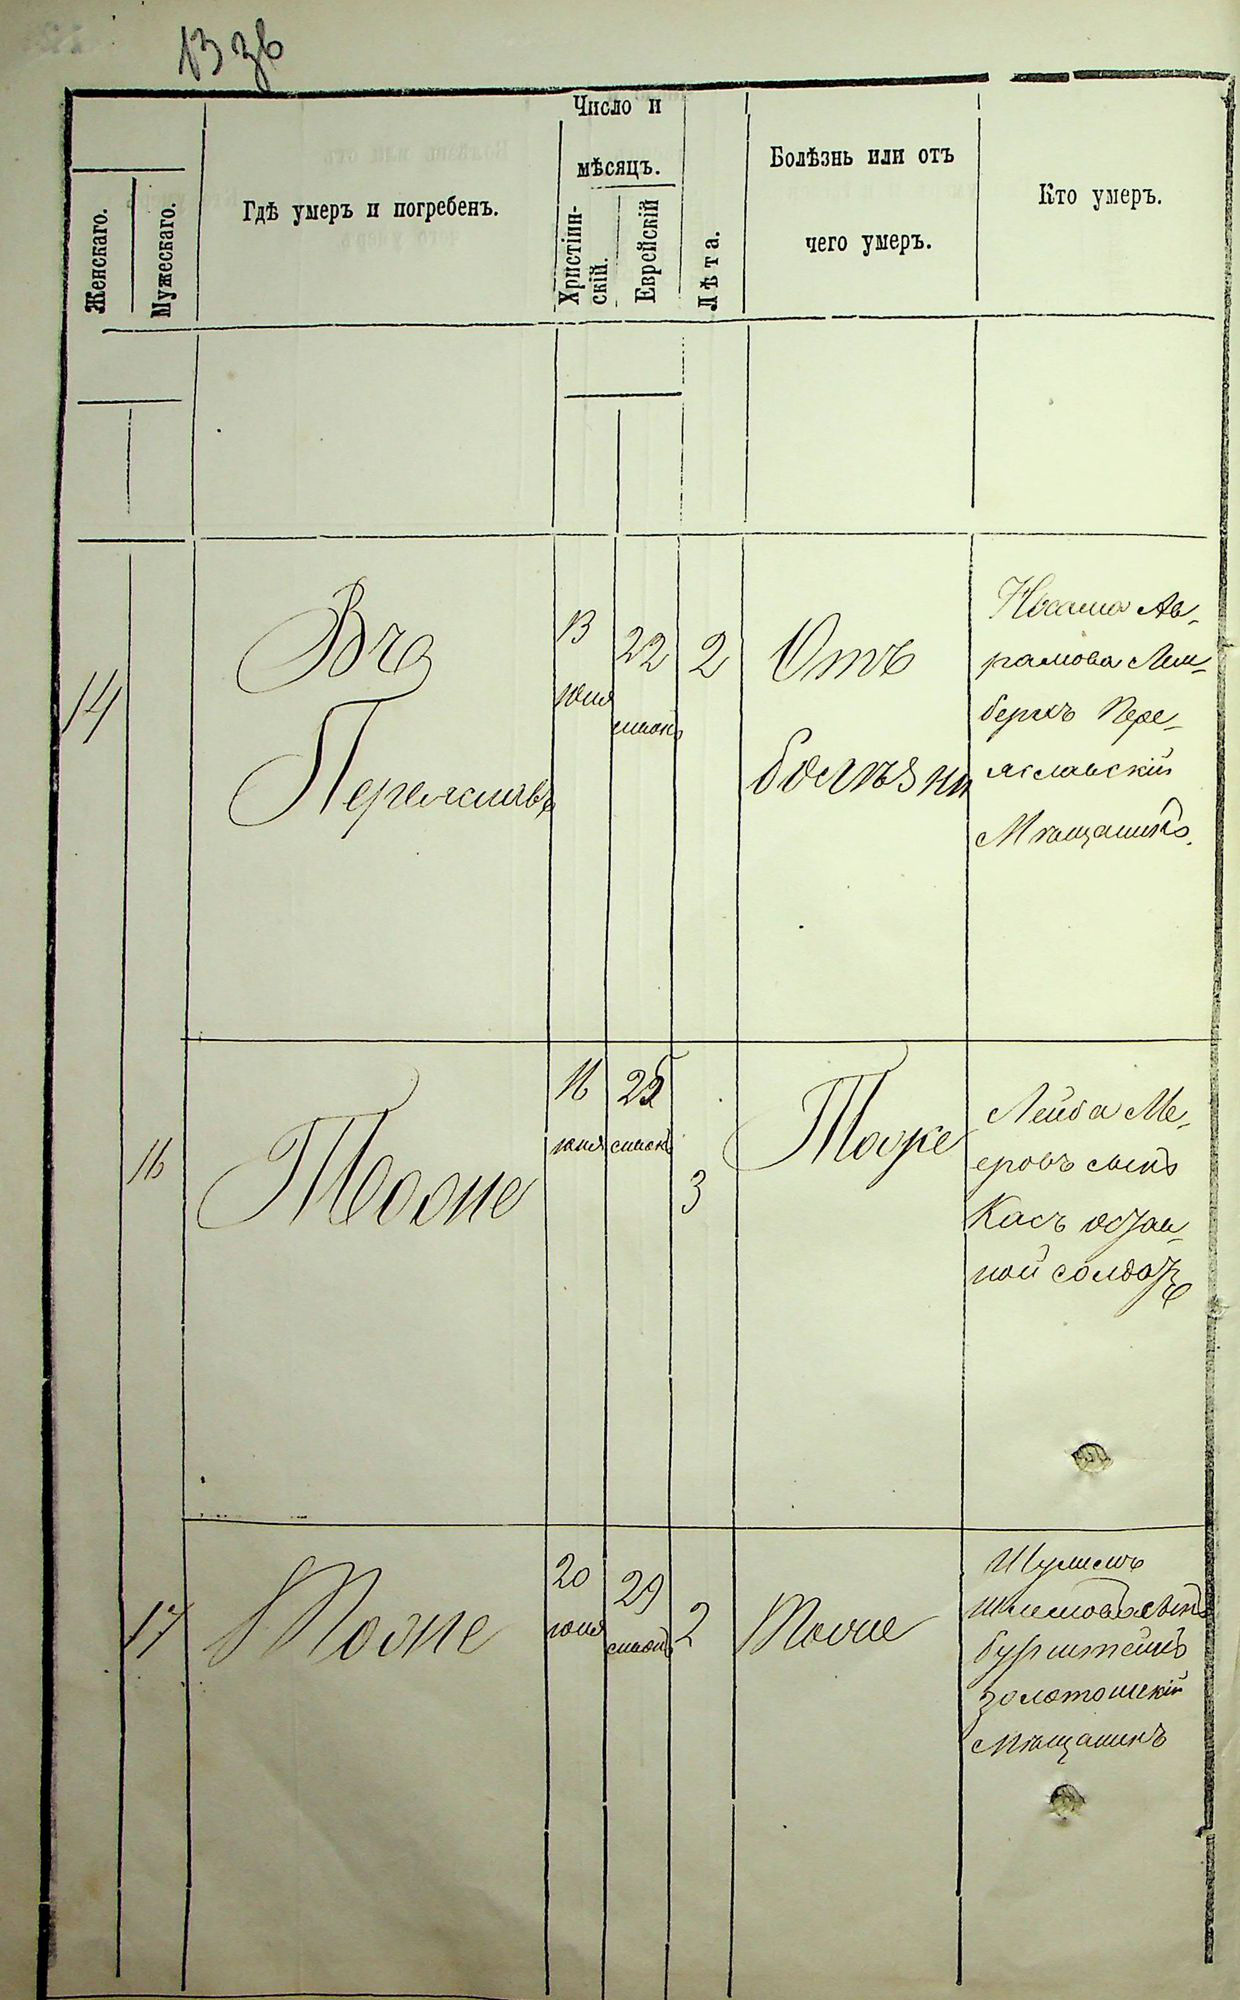 13 зв
Число и
мѣсяцъ.
Женскаго.
Мужескаго.
Гдѣ умеръ и погребенъ.
Христіин-
скій.
Еврейскій
Лѣта.
Болѣзнь или отъ
чего умеръ.
Кто умеръ.
14
Вго
Переяславѣ
13
юня
22
сиванъ
2
Отъ
болѣзни
Ав-
рамова Лим-
бергъ Пере-
яславскій
Мѣщанинъ.
16
Тоже
16
юня
25
сиванъ
3
Тоже
Лейба Ме-
еровъ сынъ
Касъ
ной солдатъ
17
Тоже
20
юня
29
сиванъ
2
Тоже
Шулимъ
Шлемовъ сынъ
бурштейнъ
золотошскій
мѣщанинъ